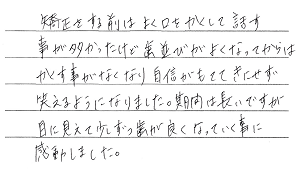 矯正をする前はよく口をかくして話す
事が多かったけど歯並びがよくなってからは
かくす事がなくなり自信がもてきにせず
笑えるようになりました。期間は長いですが
目に見えて少しずつ歯が良くなっていく事に
感動しました。